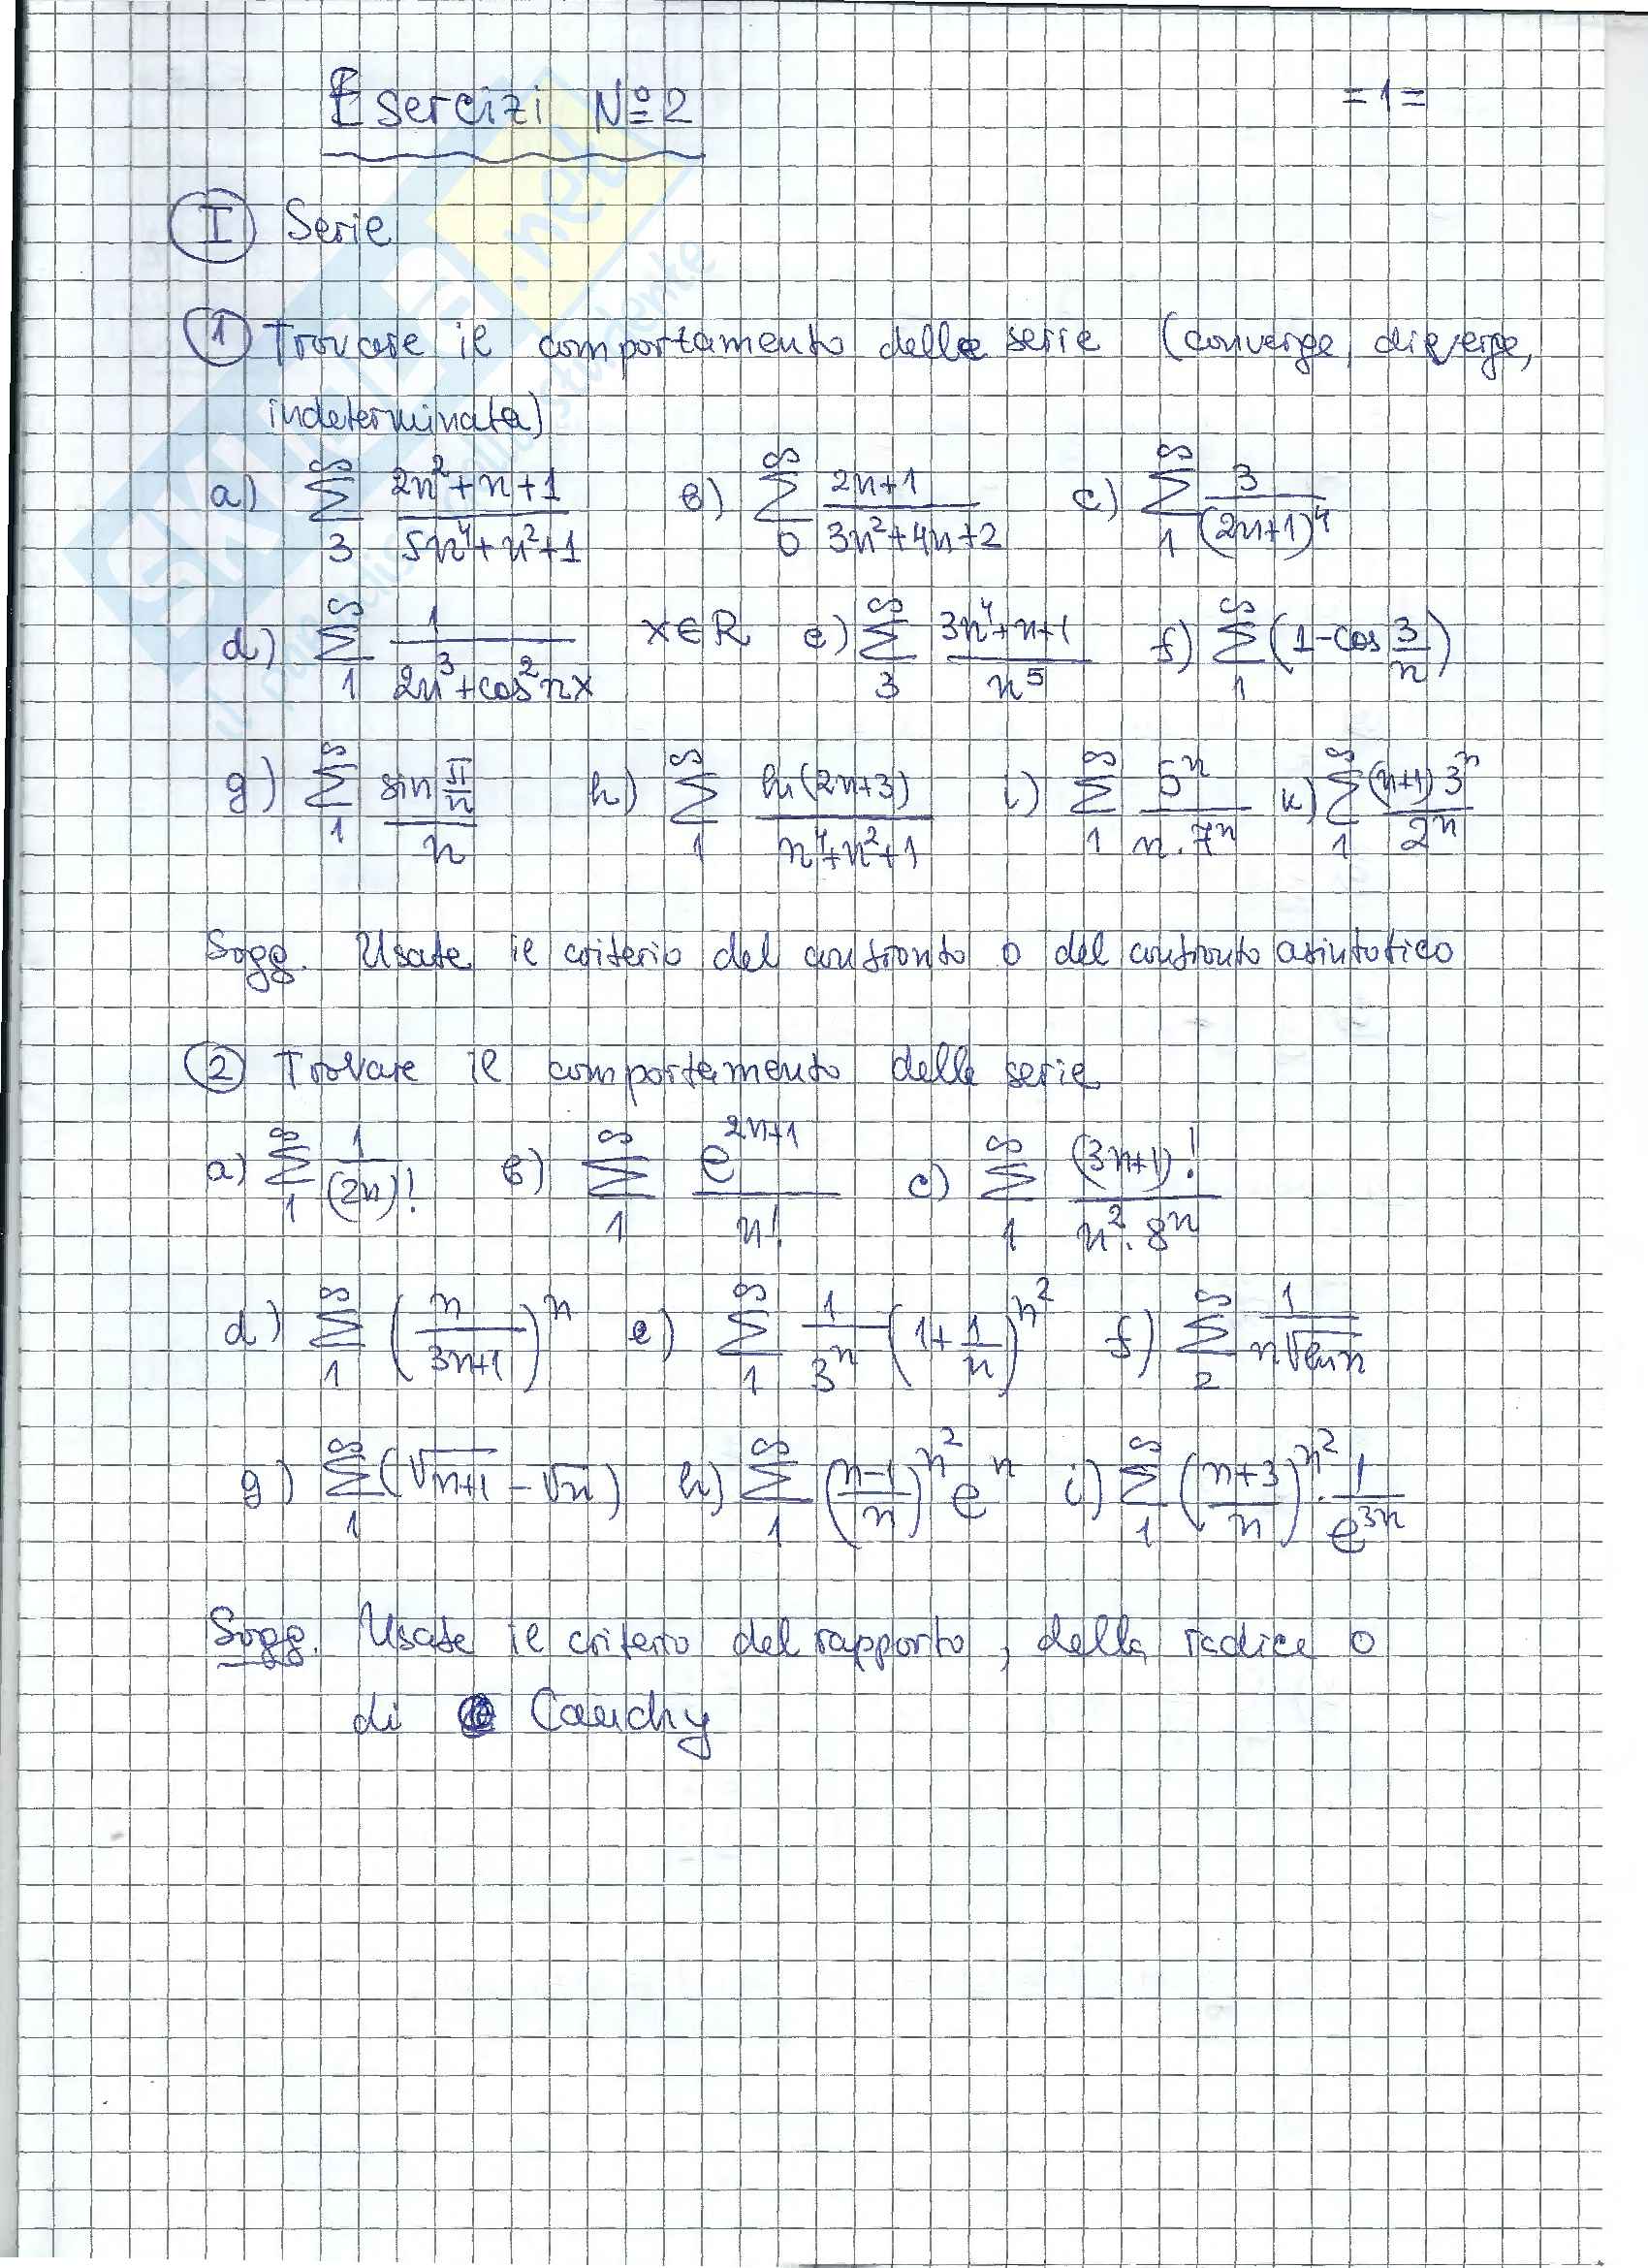 Esercizi Nº2 =1=
I Serie
1 Trovare il comportamento delle serie (converge, diverge,
indeterminata)
a) ∑_3^∞ (2n²+n+1)/(5n⁴+n²+1) b) ∑_0^∞ (2n+1)/(3n²+4n+2) c) ∑_1^∞ 3/(2n+1)⁴
d) ∑_1^∞ 1/(2n³+cos²nx) x∈R e) ∑_3^∞ (3n⁴+n+1)/n⁵ f) ∑_1^∞ (1-cos 3/n)
g) ∑_1^∞ (sin π/n)/n h) ∑_1^∞ ln(2n+3)/(n⁴+n²+1) i) ∑_1^∞ 5ⁿ/(n.7ⁿ) k) ∑_1^∞ (n+1)3ⁿ/2ⁿ
Sogg. Usate il criterio del confronto o del confronto asintotico
2 Trovare il comportamento delle serie
a) ∑_1^∞ 1/(2n)! b) ∑_1^∞ e^(2n+1)/n! c) ∑_1^∞ (3n+1)!/(n².8ⁿ)
d) ∑_1^∞ (n/(3n+1))ⁿ e) ∑_1^∞ 1/3ⁿ (1+1/n)^n² f) ∑_2^∞ 1/(n√ln n)
g) ∑_1^∞ (√(n+1) - √n) h) ∑_1^∞ ((n-1)/n)^n² eⁿ i) ∑_1^∞ ((n+3)/n)^n² . 1/e^(3n)
Sogg. Usate il criterio del rapporto, della radice o
di Cauchy
SKUOLA.net